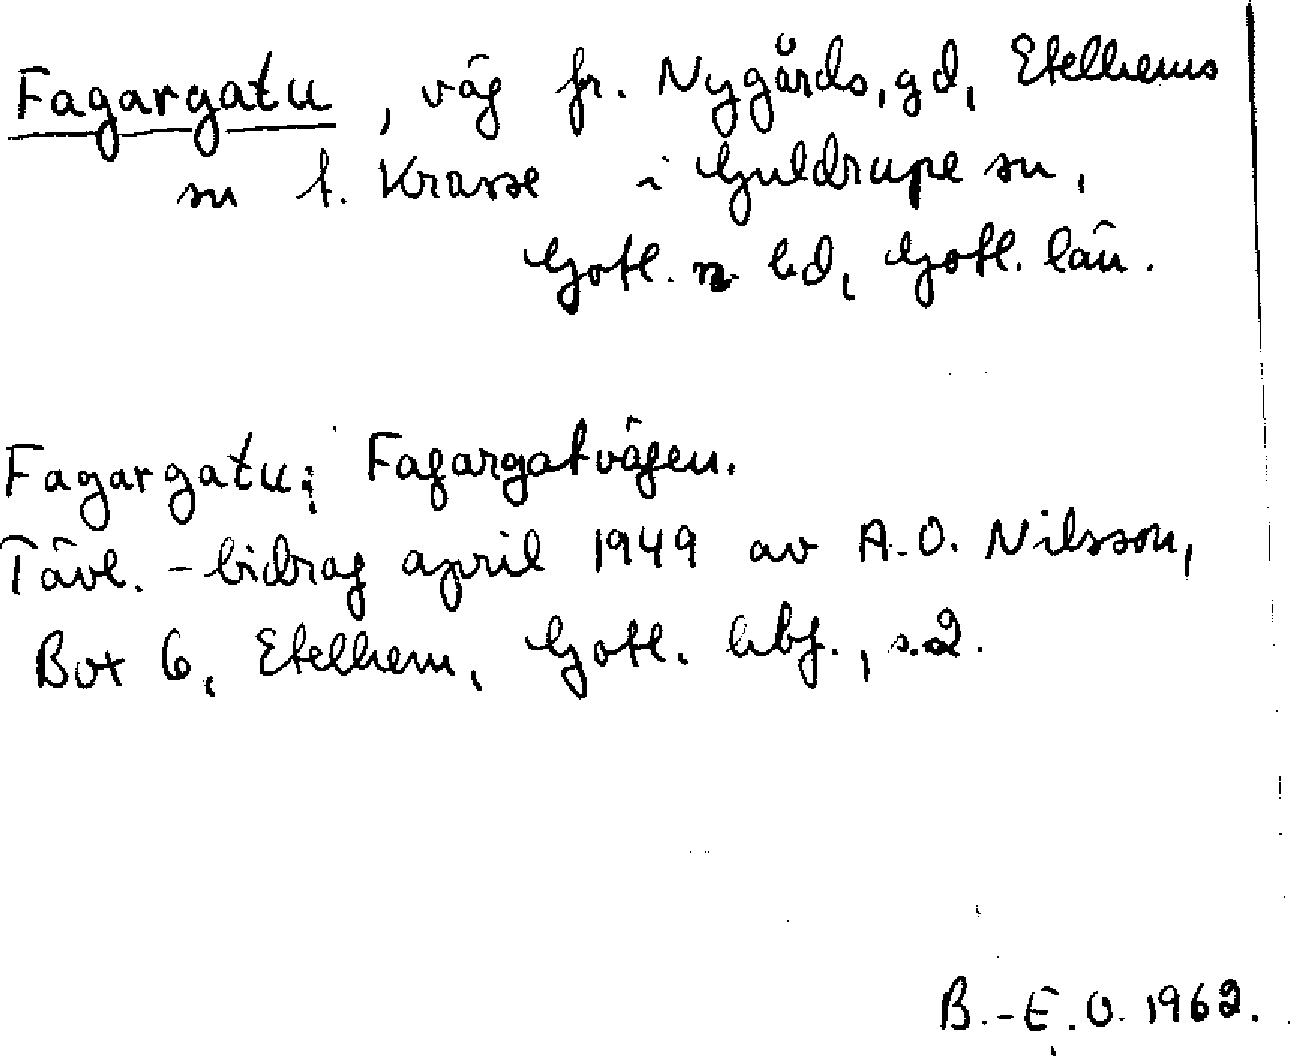 Fagargatu, väg fr. Nygårds, gd, Etelhems
sn t. Krasse i Guldrupe sn,
Gotl. n. hd, Gotl. län.
Fagargatu; Fagargatvägen.
Tävl.-bidrag april 1949 av A.O. Nilsson,
Box 6, Etelhem, Gotl. hbf., s.2.
B.-E.O. 1962.